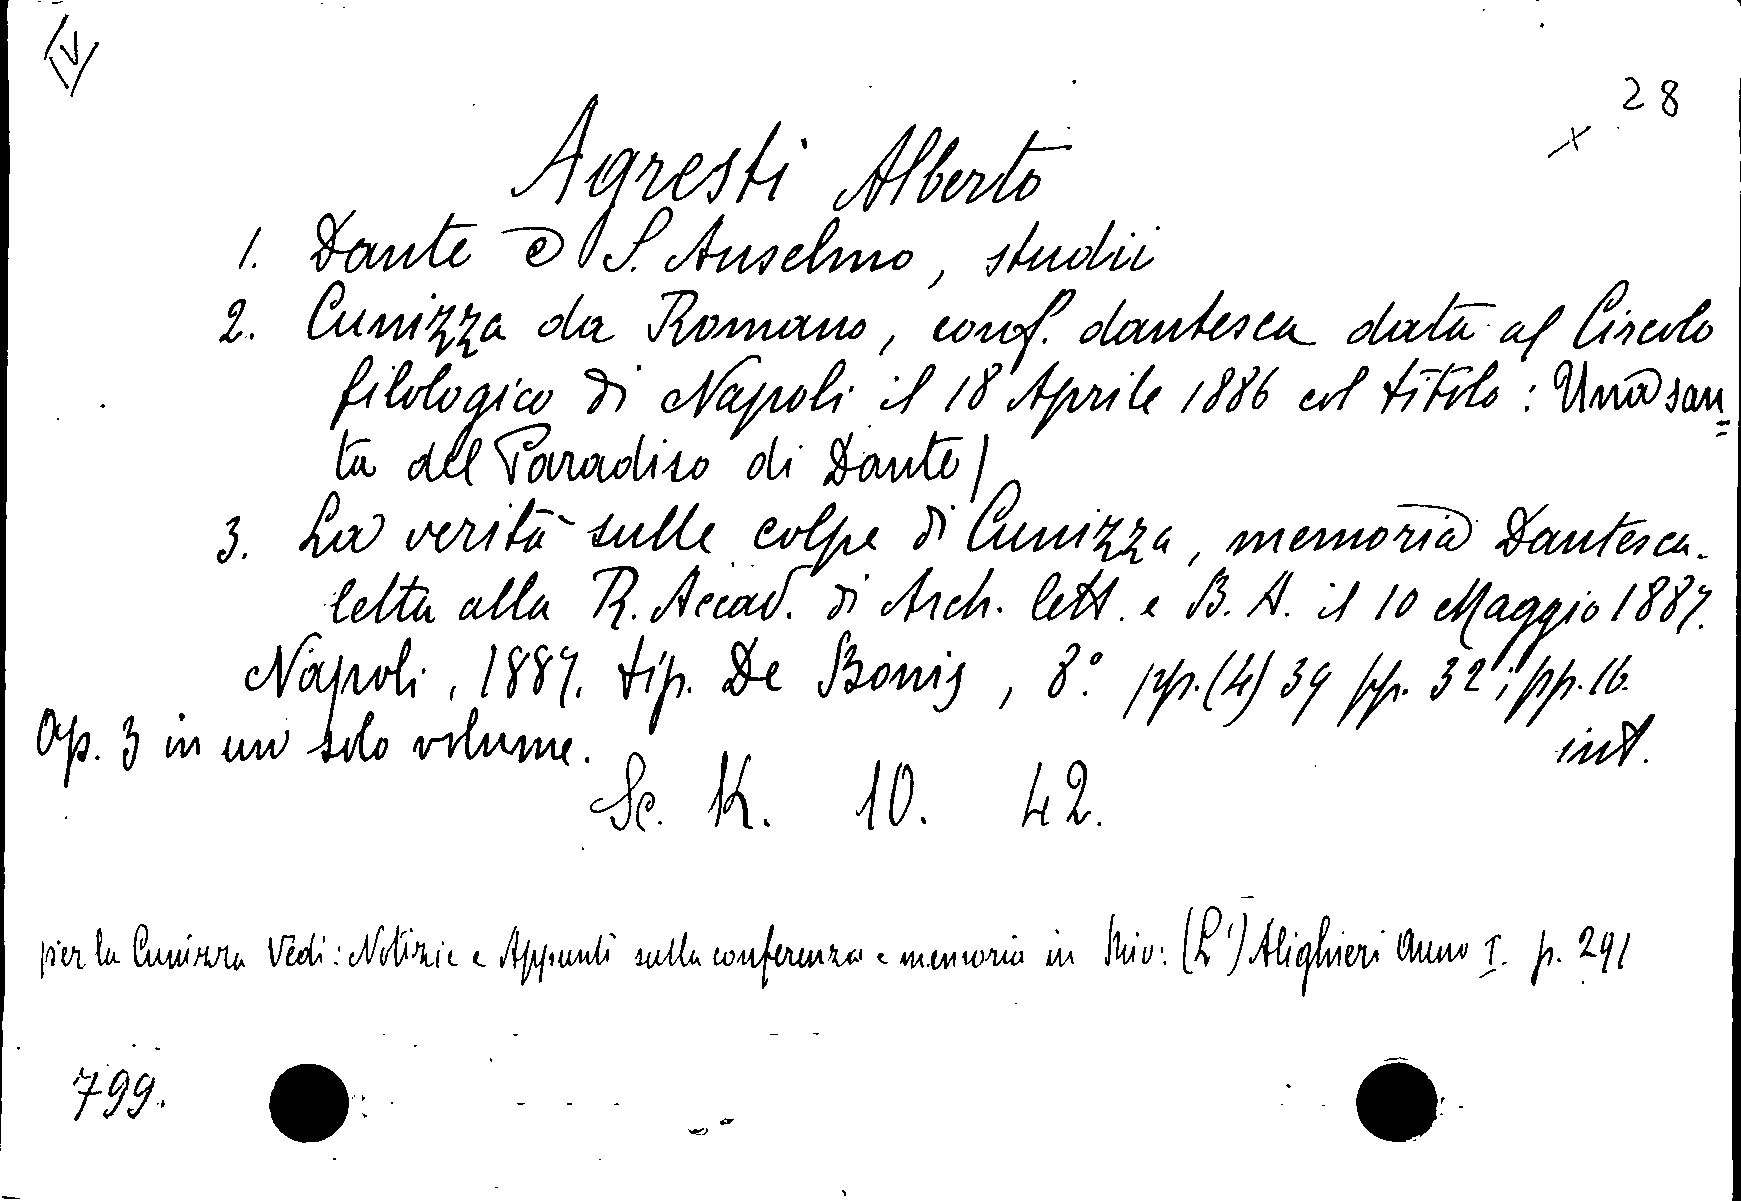 V
28
x
Agresti Alberto
1. Dante e S. Anselmo, studii
2. Cunizza da Romano, conf. dantesca data al Circolo
filologico di Napoli il 18 Aprile 1886 col titolo: Una san=
ta del Paradiso di Dante/
3. La verità sulle colpe di Cunizza, memoria Dantesca
letta alla R. Accad. di Arch. lett. e B. A. il 10 Maggio 1887.
Napoli, 1887. tip. De Bonis, 8° pp. (4) 39 pp. 32; pp. 16.
Op. 3 in un solo volume. int.
Sc. K. 10. 42.
per la Cunizza Vedi: Notizie e Appunti sulla conferenza e memoria in Riv: (L') Alighieri Anno I. p. 291
799.